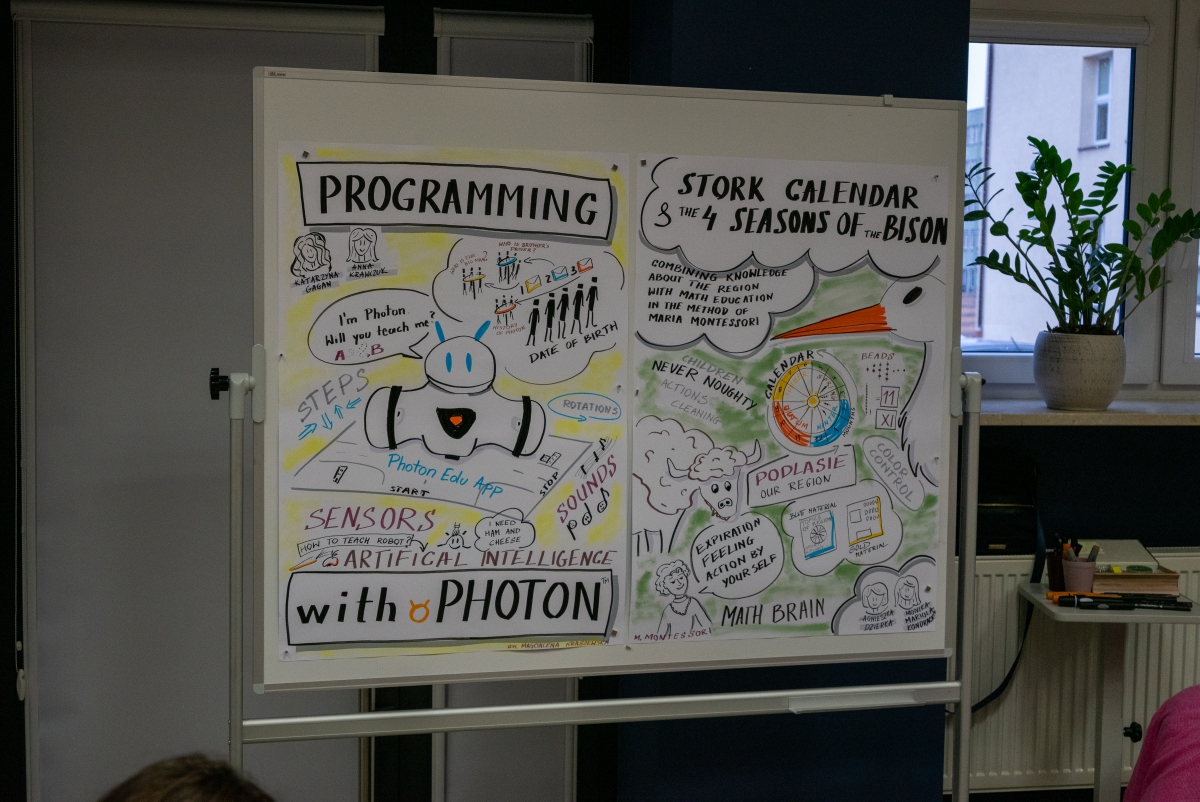 PROGRAMMING
KATARZYNA
GAGAN
ANNA
KRAWCZUK
WHO IS BROWER'S
1 2 3
HISTORY
OF PHOTON
DATE OF BIRTH
I'm Photon.
Will you teach me?
A B
STEPS
ROTATIONS
Photon Edu App
START
STOP
SOUNDS
SENSORS
I NEED
HAM AND
CHEESE
HOW TO TEACH ROBOT?
ARTIFICAL INTELLIGENCE
with PHOTON™
STORK CALENDAR
& THE 4 SEASONS OF THE BISON
COMBINING KNOWLEDGE
ABOUT THE REGION
WITH MATH EDUCATION
IN THE METHOD OF
MARIA MONTESSORI
CHILDREN
NEVER NOUGHTY
ACTIONS
CLEANING
CALENDAR
BEADS
11
XI
WINTER
COLOR
CONTROL
PODLASIE
OUR REGION
BLUE MATERIAL
GOLD
MATERIAL
EXPIRATION
FEELING
ACTION BY
YOURSELF
MATH BRAIN
M. MONTESSORI
AGNIESZKA
DZIERKA
MONIKA